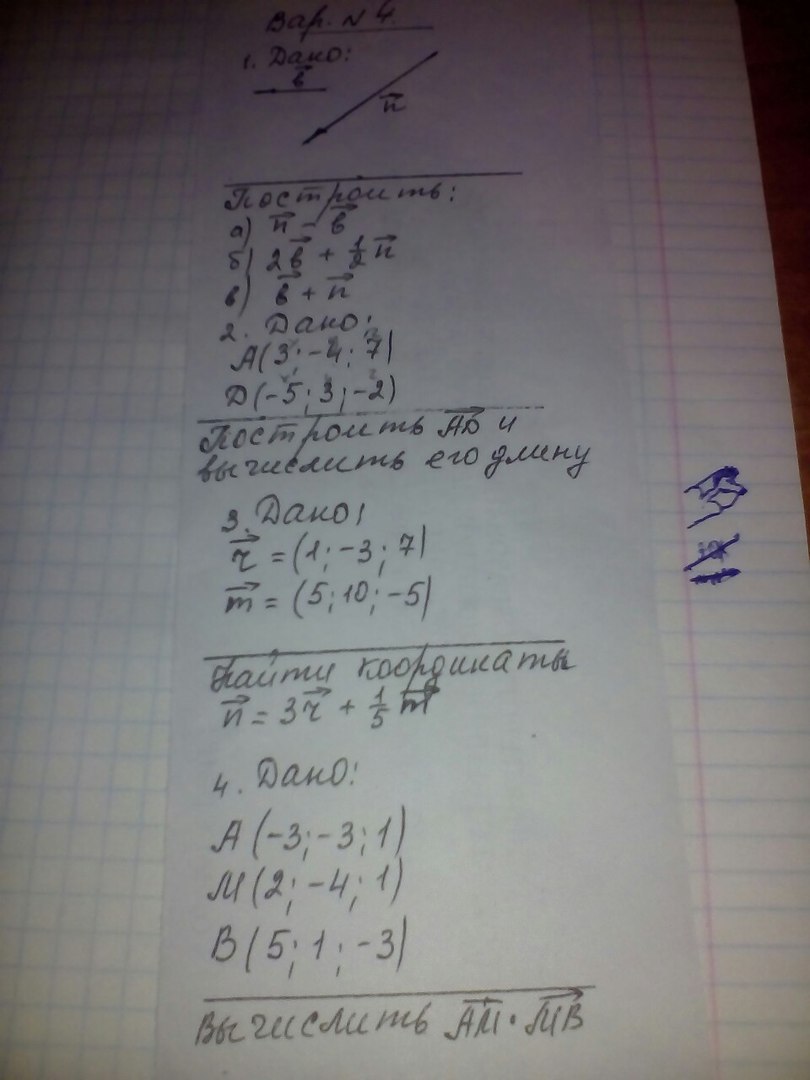 Вар. N 4.
1. Дано:
в⃗
n⃗
Построить:
а) n⃗ - в⃗
б) 2в⃗ + 1/2 n⃗
в) в⃗ + n⃗
2. Дано:
А(3; -4; 7)
D(-5; 3; -2)
Построить AD⃗ и
вычислить его длину
3. Дано:
r⃗ = (1; -3; 7)
m⃗ = (5; 10; -5)
Найти координаты
n⃗ = 3r⃗ + 1/5 m⃗
4. Дано:
А(-3; -3; 1)
М(2; -4; 1)
В(5; 1; -3)
Вычислить AM⃗ · MB⃗